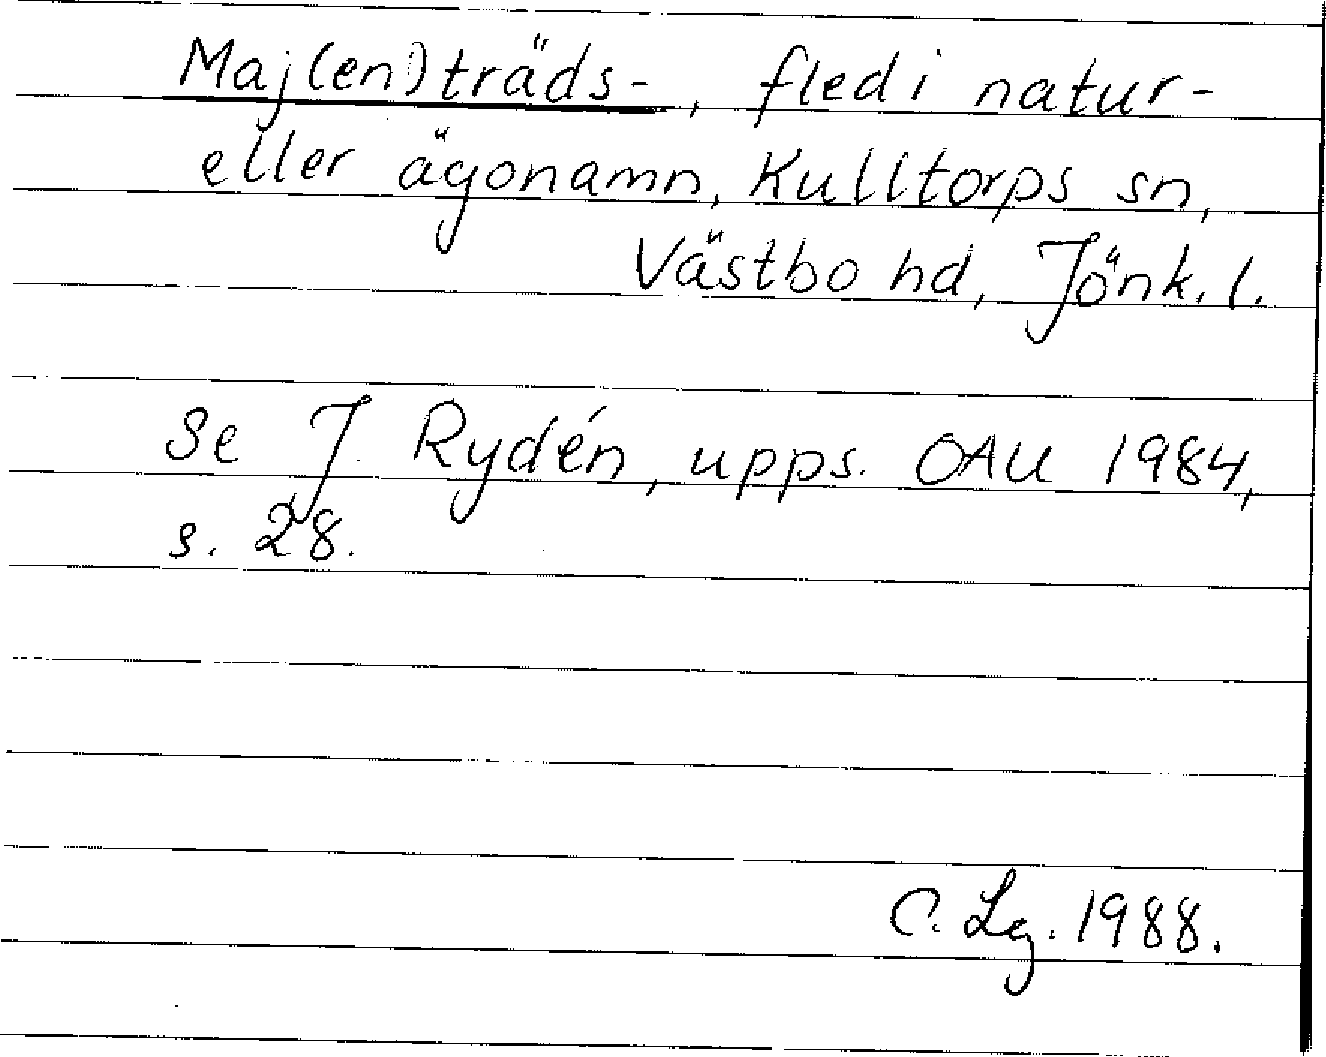 Maj(en)träds-, fled i natur-
eller ägonamn, Kulltorps sn,
Västbo hd, Jönk. l.
Se J. Rydén, upps. OAU 1984,
s. 28.
C. Lg. 1988.